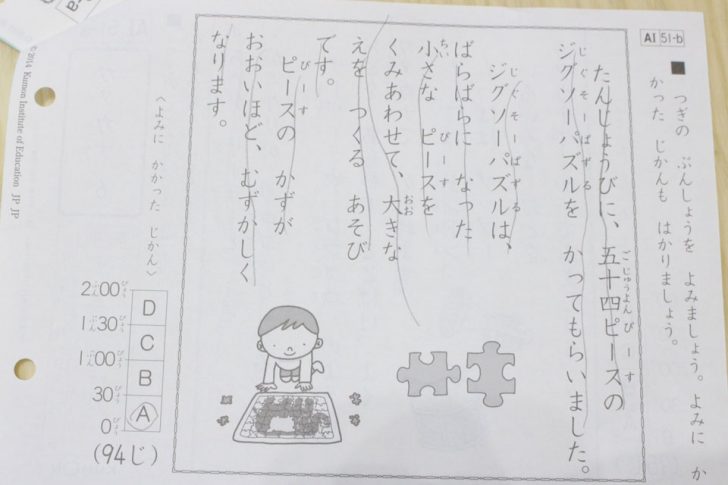 AI 51-b
■ つぎの ぶんしょうを よみましょう。よみに か
かった じかんも はかりましょう。
たんじょうびに、五十四ピースの
ごじゅうよんぴーす
ジグソーパズルを かってもらいました。
じぐそーぱずる
ジグソーパズルは、
じぐそーぱずる
ばらばらに なった
小さな ピースを
ちい ぴーす
くみあわせて、大きな
おお
えを つくる あそび
です。
ピースの かずが
ぴーす
おおいほど、むずかしく
なります。
〈よみに かかった じかん〉
2:00
ぷん びょう
1:30
ぷん びょう
1:00
ぷん びょう
30
びょう
0
びょう
D
C
B
A
(94じ)
©2014 Kumon Institute of Education JP JP